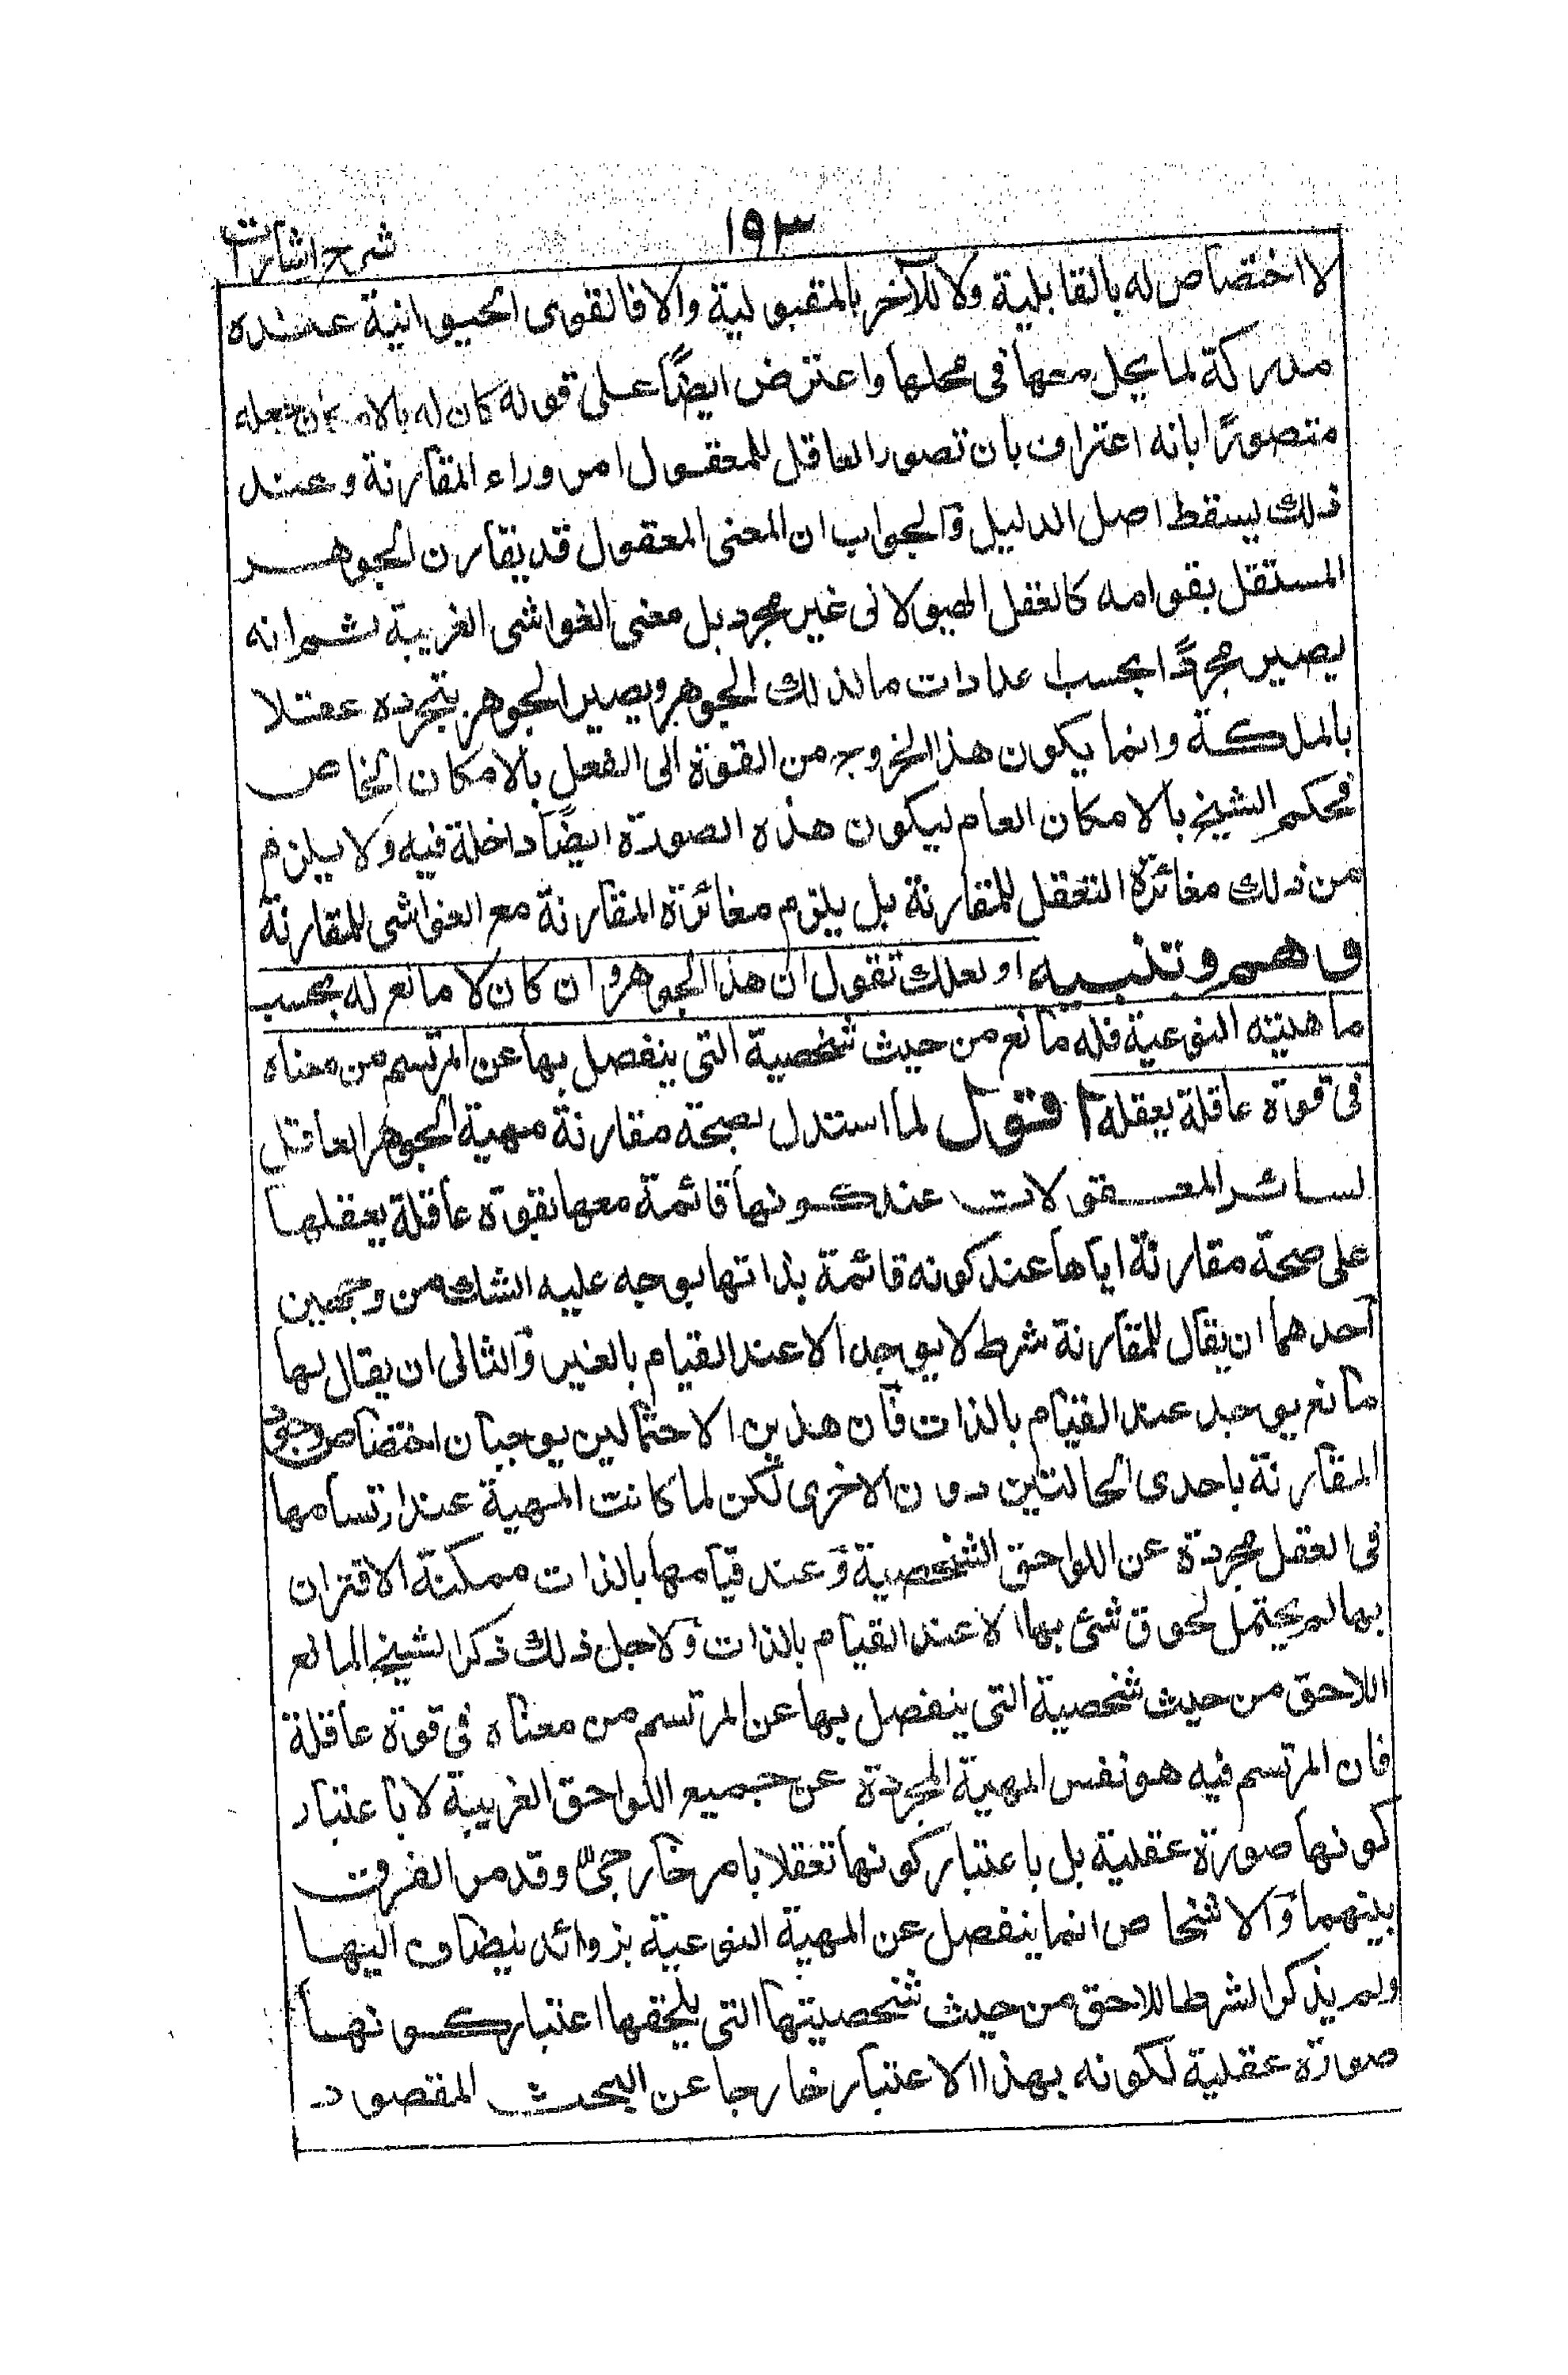 ١٩٣
شرح اشارات
لا اختصاص له بالقابلية ولا للآخر بالمقبولية والا فالقوى الحيوانية عنده
مدركة لما يحل معها فى محلها واعترض ايضًا على قوله كان له بالامكان جعله
متصورًا بانه اعتراف بان تصور العاقل للمعقول امر وراء المقارنة وعند
ذلك يسقط اصل الدليل والجواب ان المعنى المعقول قد يقارن الجوهر
المستقل بقوامه كالعقل الهيولانى غير مجرد بل معنى الغواشى الغريبة ثم انه
يصير مجردًا بحسب اعدادات ما لذلك الجوهر ويصير الجوهر بتجرده عقلا
بالملكة وانما يكون هذا الخروج من القوة الى الفعل بالامكان الخاص
فحكم الشيخ بالامكان العام ليكون هذه الصورة ايضًا داخلة فيه ولا يلزم
من ذلك مغائرة التعقل للمقارنة بل يلزم مغائرة المقارنة مع الغواشى للمقارنة
وهم وتنبيه او لعلك تقول ان هذا الجوهر وان كان لا مانع له بحسب
ماهيته النوعية فله مانع من حيث شخصية التى ينفصل بها عن المرتسم من معناه
فى قوة عاقلة يعقله اقول لما استدل بصحة مقارنة مهية الجوهر العاقل
لسائر المعقولات عند كونها قائمة معها بقوة عاقلة يعقلها
على صحة مقارنة اياها عند كونه قائمة بذاتها يوجه عليه الشك من وجهين
احدهما ان يقال للمقارنة شرط لا يوجد الا عند القيام بالغير والثانى ان يقال لها
مانع يوجد عند القيام بالذات فان هذين الاحتمالين يوجبان اختصاص وجود
المقارنة باحدى الحالتين دون الاخرى لكن لما كانت المهية عند ارتسامها
فى العقل مجردة عن اللواحق الشخصية وعند قيامها بالذات ممكنة الاقتران
بها لم يحتمل لحوق شئ بها الا عند القيام بالذات ولاجل ذلك ذكر الشيخ المانع
اللاحق من حيث شخصية التى ينفصل بها عن المرتسم من معناه فى قوة عاقلة
فان المرتسم فيه هو نفس المهية المجردة عن جميع اللواحق الغريبة لا باعتبار
كونها صورة عقلية بل باعتبار كونها تعقلا بامر خارجىّ وقد مر الفرق
بينهما والاشخاص انما ينفصل عن المهية النوعية بزوائد ينضاف اليها
ولم يذكر الشرط اللاحق من حيث شخصيتها التى يلحقها اعتبار كونها
صورة عقلية لكونه بهذا الاعتبار خارجا عن البحث المقصود